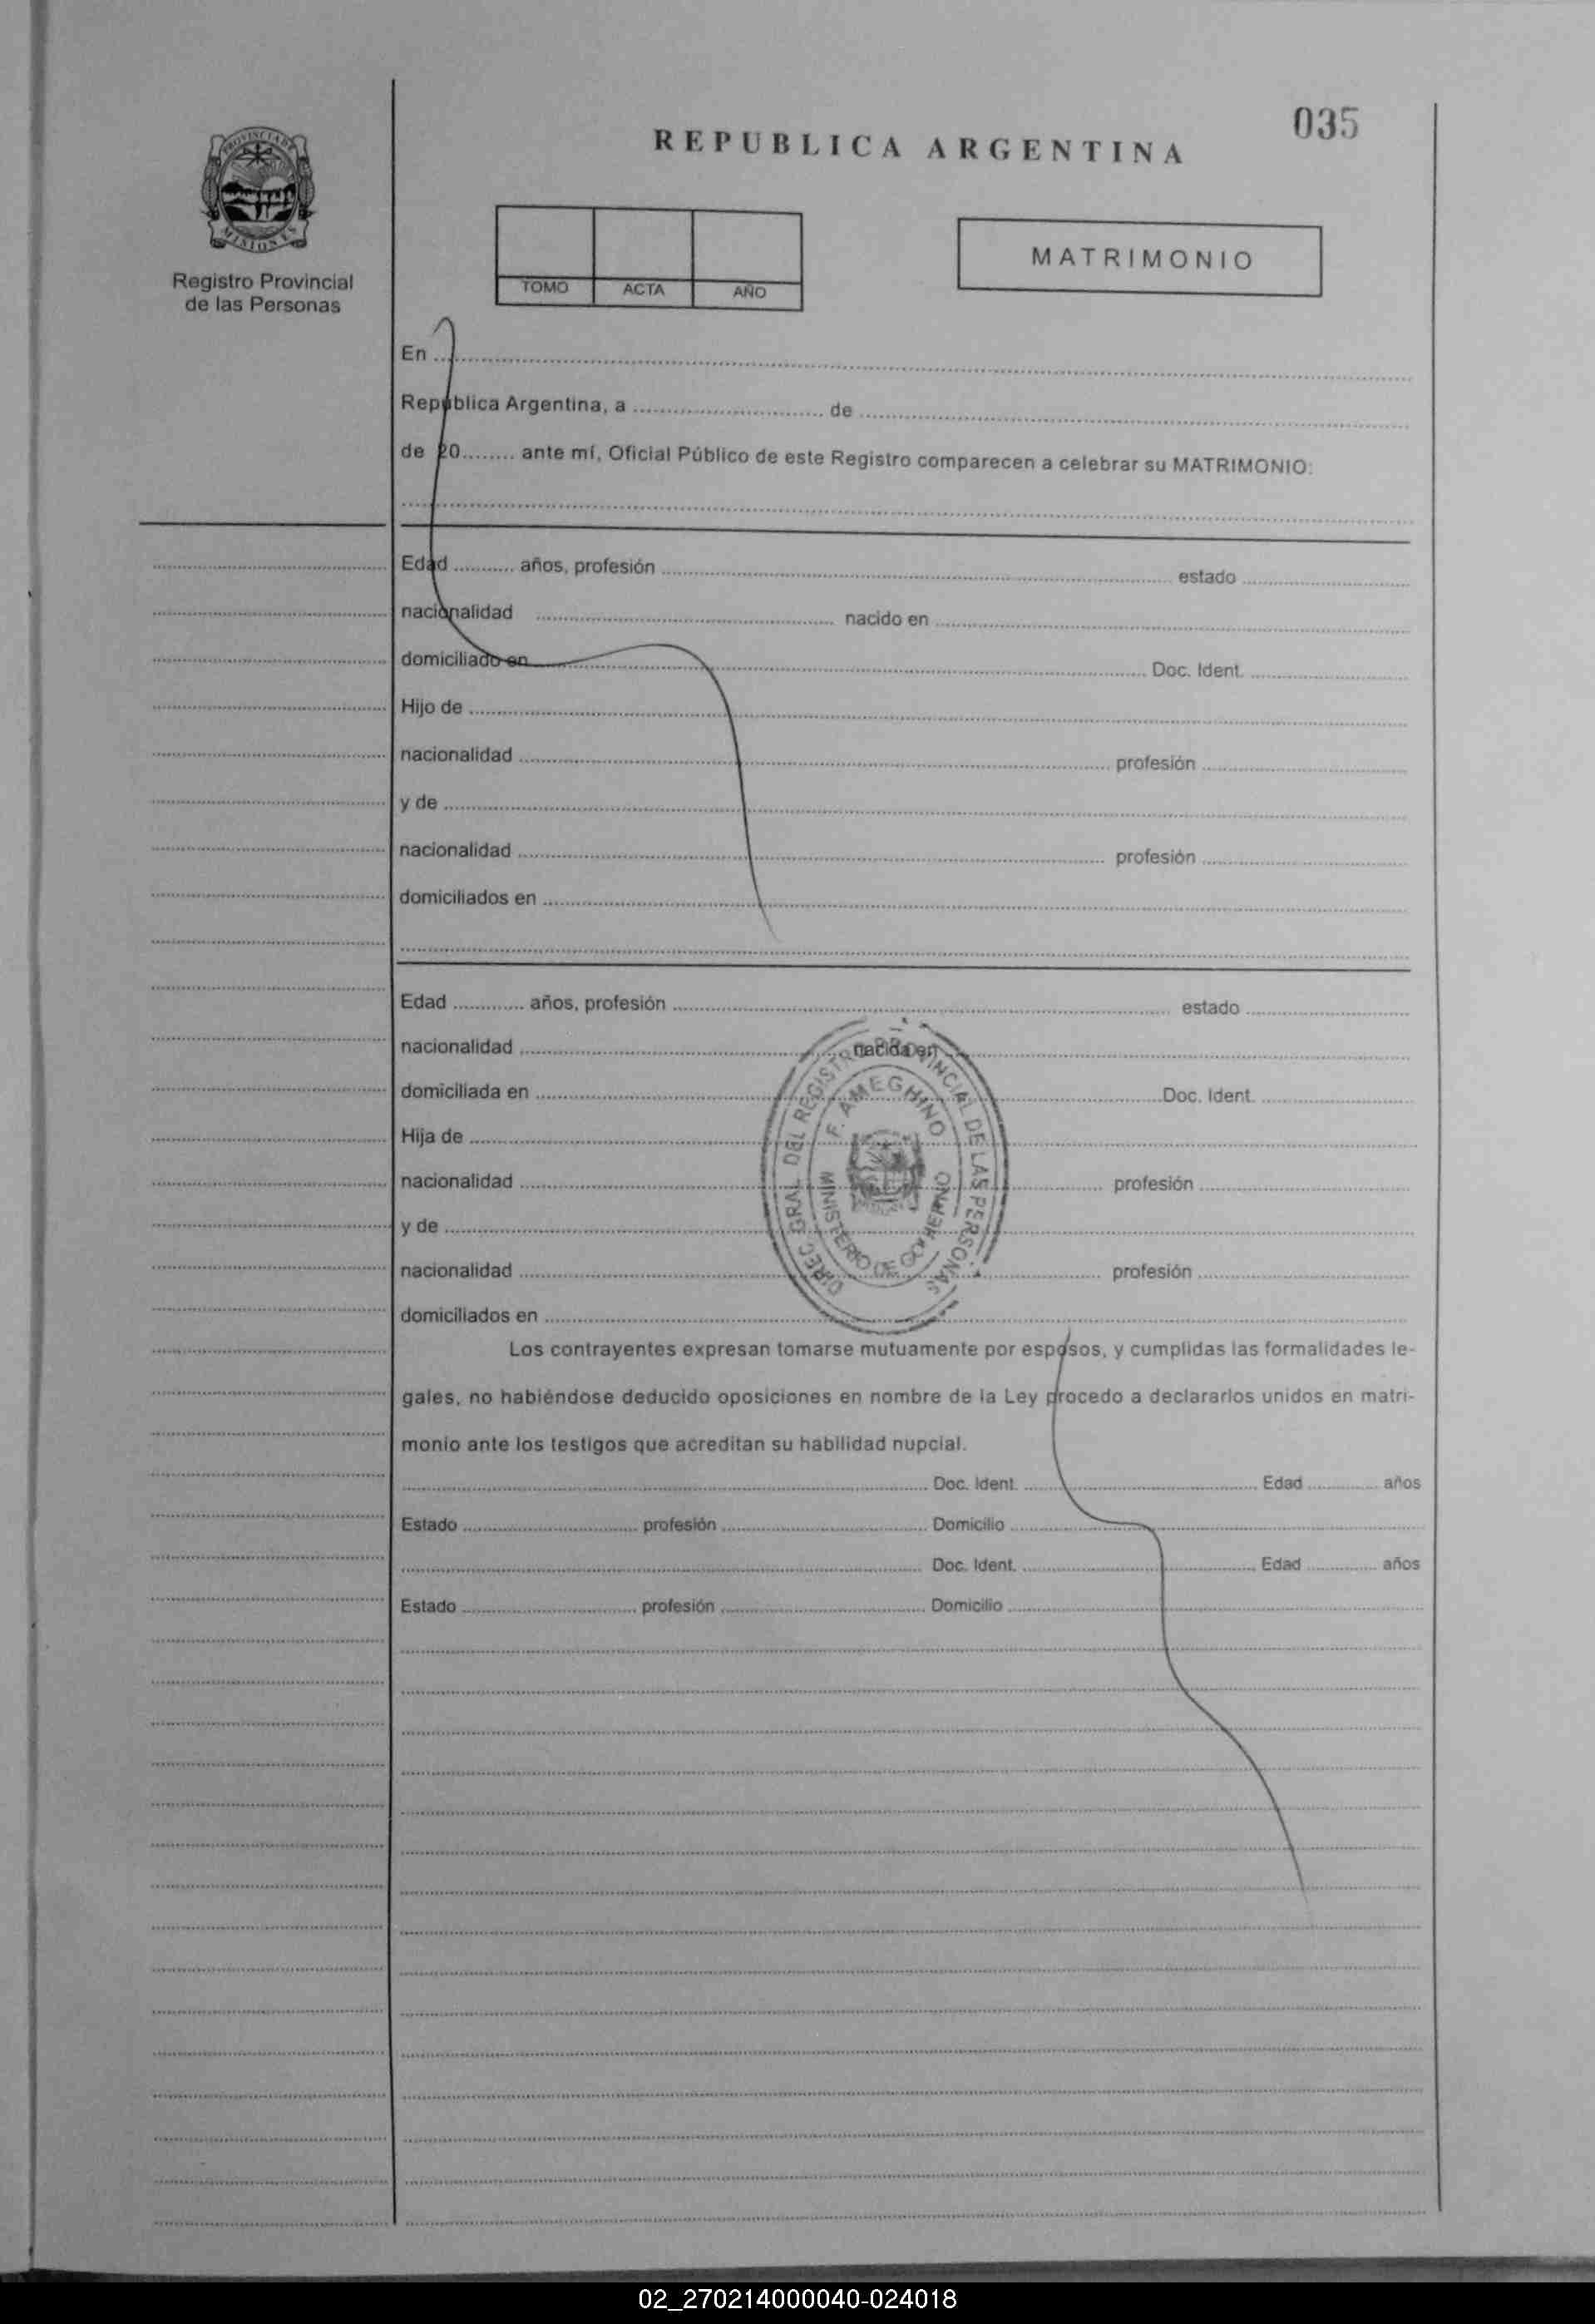 035
REPUBLICA ARGENTINA
PROVINCIA DE
MISIONES
Registro Provincial
de las Personas
TOMO ACTA AÑO
MATRIMONIO
En
República Argentina, a de
de 20 ante mí, Oficial Público de este Registro comparecen a celebrar su MATRIMONIO:
Edad años, profesión estado
nacionalidad nacido en
domiciliado en Doc. Ident.
Hijo de
nacionalidad profesión
y de
nacionalidad profesión
domiciliados en
Edad años, profesión estado
nacionalidad nacida en
domiciliada en Doc. Ident.
Hija de
nacionalidad profesión
y de
nacionalidad profesión
domiciliados en
DIREC. GRAL. DEL REGISTRO PROVINCIAL DE LAS PERSONAS
F. AMEGHINO
MINISTERIO DE GOBIERNO
Los contrayentes expresan tomarse mutuamente por esposos, y cumplidas las formalidades le-
gales, no habiéndose deducido oposiciones en nombre de la Ley procedo a declararlos unidos en matri-
monio ante los testigos que acreditan su habilidad nupcial.
Doc. Ident. Edad años
Estado profesión Domicilio
Doc. Ident. Edad años
Estado profesión Domicilio
02_270214000040-024018